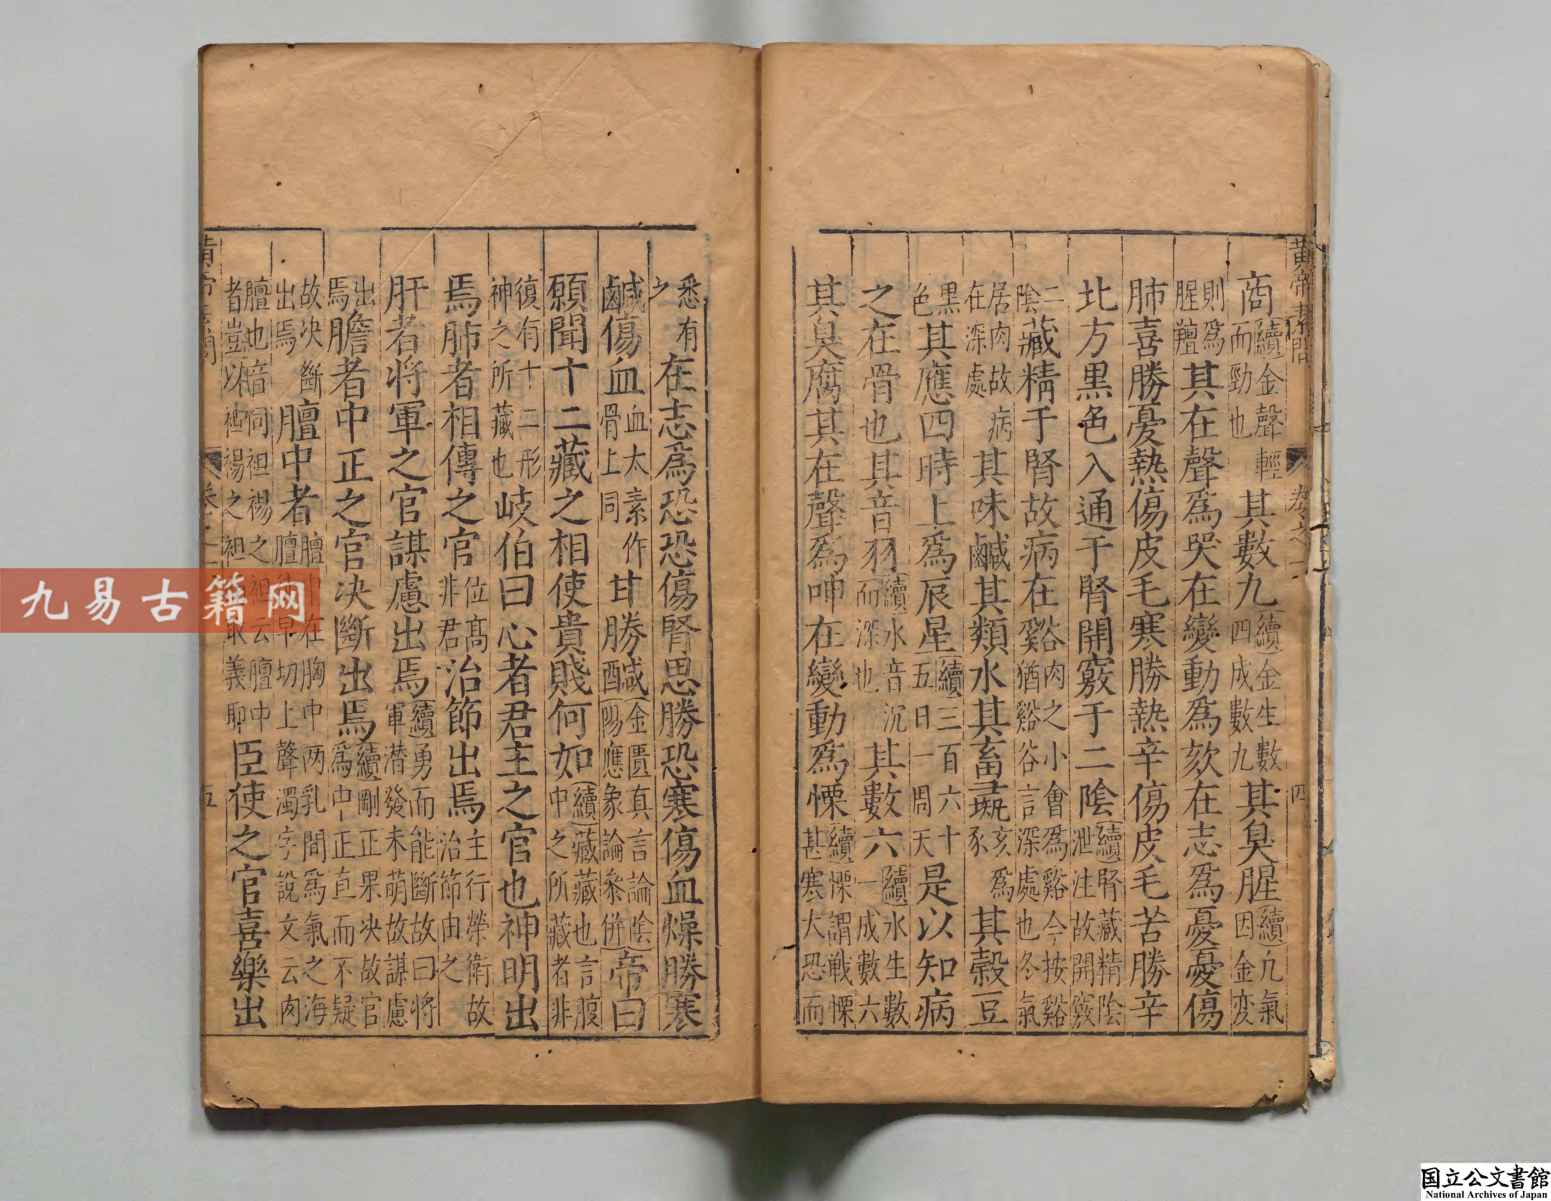 商續金聲輕而勁也其數九續金生數四成數九其臭腥續凢氣因金变
則爲腥羶其在聲爲哭在變動爲欬在志爲憂憂傷
肺喜勝憂熱傷皮毛寒勝熱辛傷皮毛苦勝辛
北方黒色入通于腎開竅于二陰續腎藏精陰泄注故開竅
二陰藏精于腎故病在谿肉之小會爲谿今按谿猶谿谷言深處也冬氣
居肉故病在深處其味鹹其類水其畜彘亥爲豕其穀豆
黒色其應四時上爲辰星續三百六十五日一周天是以知病
之在骨也其音羽續水音沉而深也其數六續水生數一成數六
其臭腐其在聲爲呻在變動爲慄續慄謂戦慄甚寒大恐而
悉有之在志爲恐恐傷腎思勝恐寒傷血燥勝寒
鹹傷血血太素作骨上同甘勝鹹金匱真言論陰陽應象論叅併帝曰
願聞十二藏之相使貴賤何如續藏藏也言腹中之所藏者非
復有十二形神之所藏也岐伯曰心者君主之官也神明出
焉肺者相傳之官位髙非君治節出焉主行榮衛故治節由之
肝者將軍之官謀慮出焉續勇而能斷故曰將軍潜發未萌故謀慮
出焉膽者中正之官决斷出焉續剛正果决故官爲中正直而不疑
故决斷出焉膻中者在胸中两乳間爲氣之海切上聲濁字說文云肉
膻也音同袒裼之云膻中者豈以袒裼之取義耶臣使之官喜樂出
四
五
九易古籍网
国立公文書館
National Archives of Japan